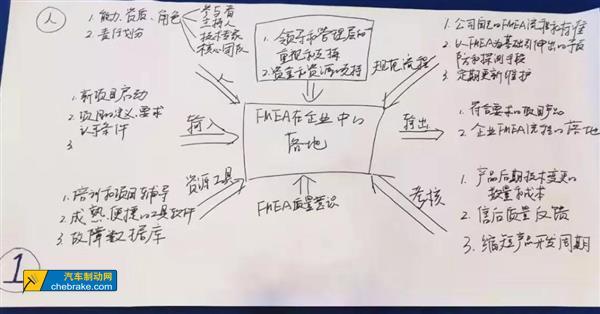 人
1. 能力、资质、角色
2. 责任划分
参与者
主持人
技术专家
核心团队
1. 领导和管理层的
重视和支持
2. 资金和资源的支持
规范流程
1. 公司自己的FMEA流程和标准
2. 以FMEA为基础引伸出的手段
3. 定期更新维护
1. 新项目启动
2. 项目的定义、要求
3
输入
FMEA在企业中的
落地
输出
1. 符合要求的项目产出
2. 企业FMEA流程的落地
资源工具
1. 培训和项目辅导
2. 成熟、便捷的工具软件
3. 故障数据库
FMEA质量意识
考核
1. 产品后期技术变更的
数量和成本
2. 售后质量反馈
3. 缩短产品开发周期
1
汽车制动网
chebrake.com